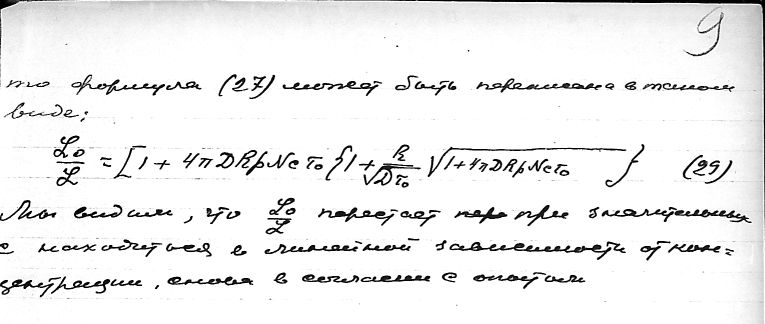 9
то формула (27) может быть переписана в таком
виде:
L₀/L = [1 + 4πDRpNcτ₀{1 + R/√Dτ₀ √1+4πDRpNcτ₀ } (29)
Мы видим, что L₀/L перестает при значительных
с находиться в линейной зависимости от кон=
центрации, снова в согласии с опытом